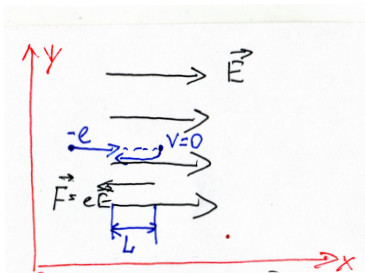 y
E
-e
v=0
F=eE
L
x